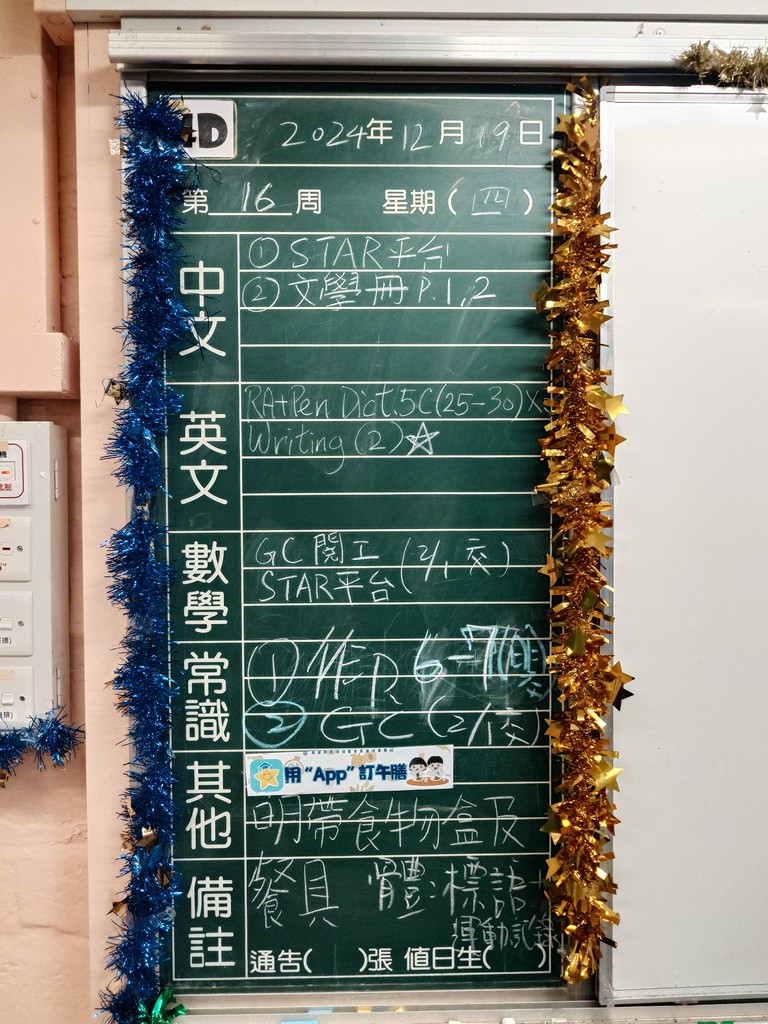 4D 2024年12月19日
第16周 星期(四)
中文
①STAR平台
②文學冊 P.1,2
英文
RA+Pen Dict.5C(25-30)X
Writing(2)☆
數學
GC 閱工 (2/1交)
STAR平台
常識
① 作P. 6-7
② GC (2/1交)
其他
用"App"訂午膳
明帶食物盒及
備註
餐具 體:標語
運動記錄
通告( )張 值日生( )